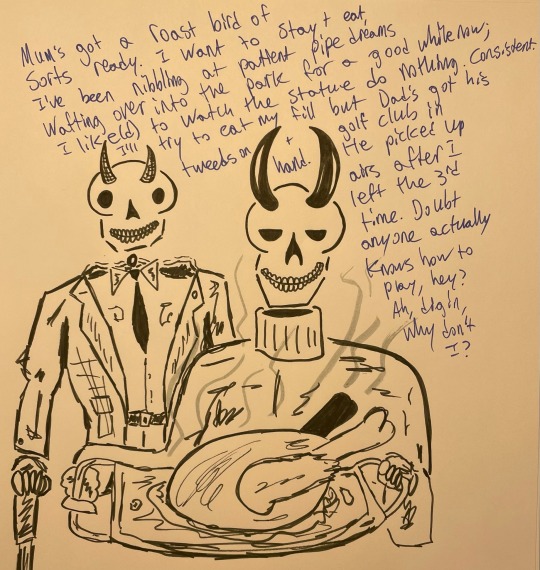 Mum's got a roast bird of
sorts ready. I want to stay + eat,
I've been nibbling at patient pipe dreams
wafting over into the park for a good while now;
I like(d) to watch the statue do nothing. Consistent.
I'll try to eat my fill but Dad's got his
tweeds on + golf club in
hand. He picked up
airs after I
left the 3rd
time. Doubt
anyone actually
knows how to
play, hey?
Ah, dig in,
why don't
I?